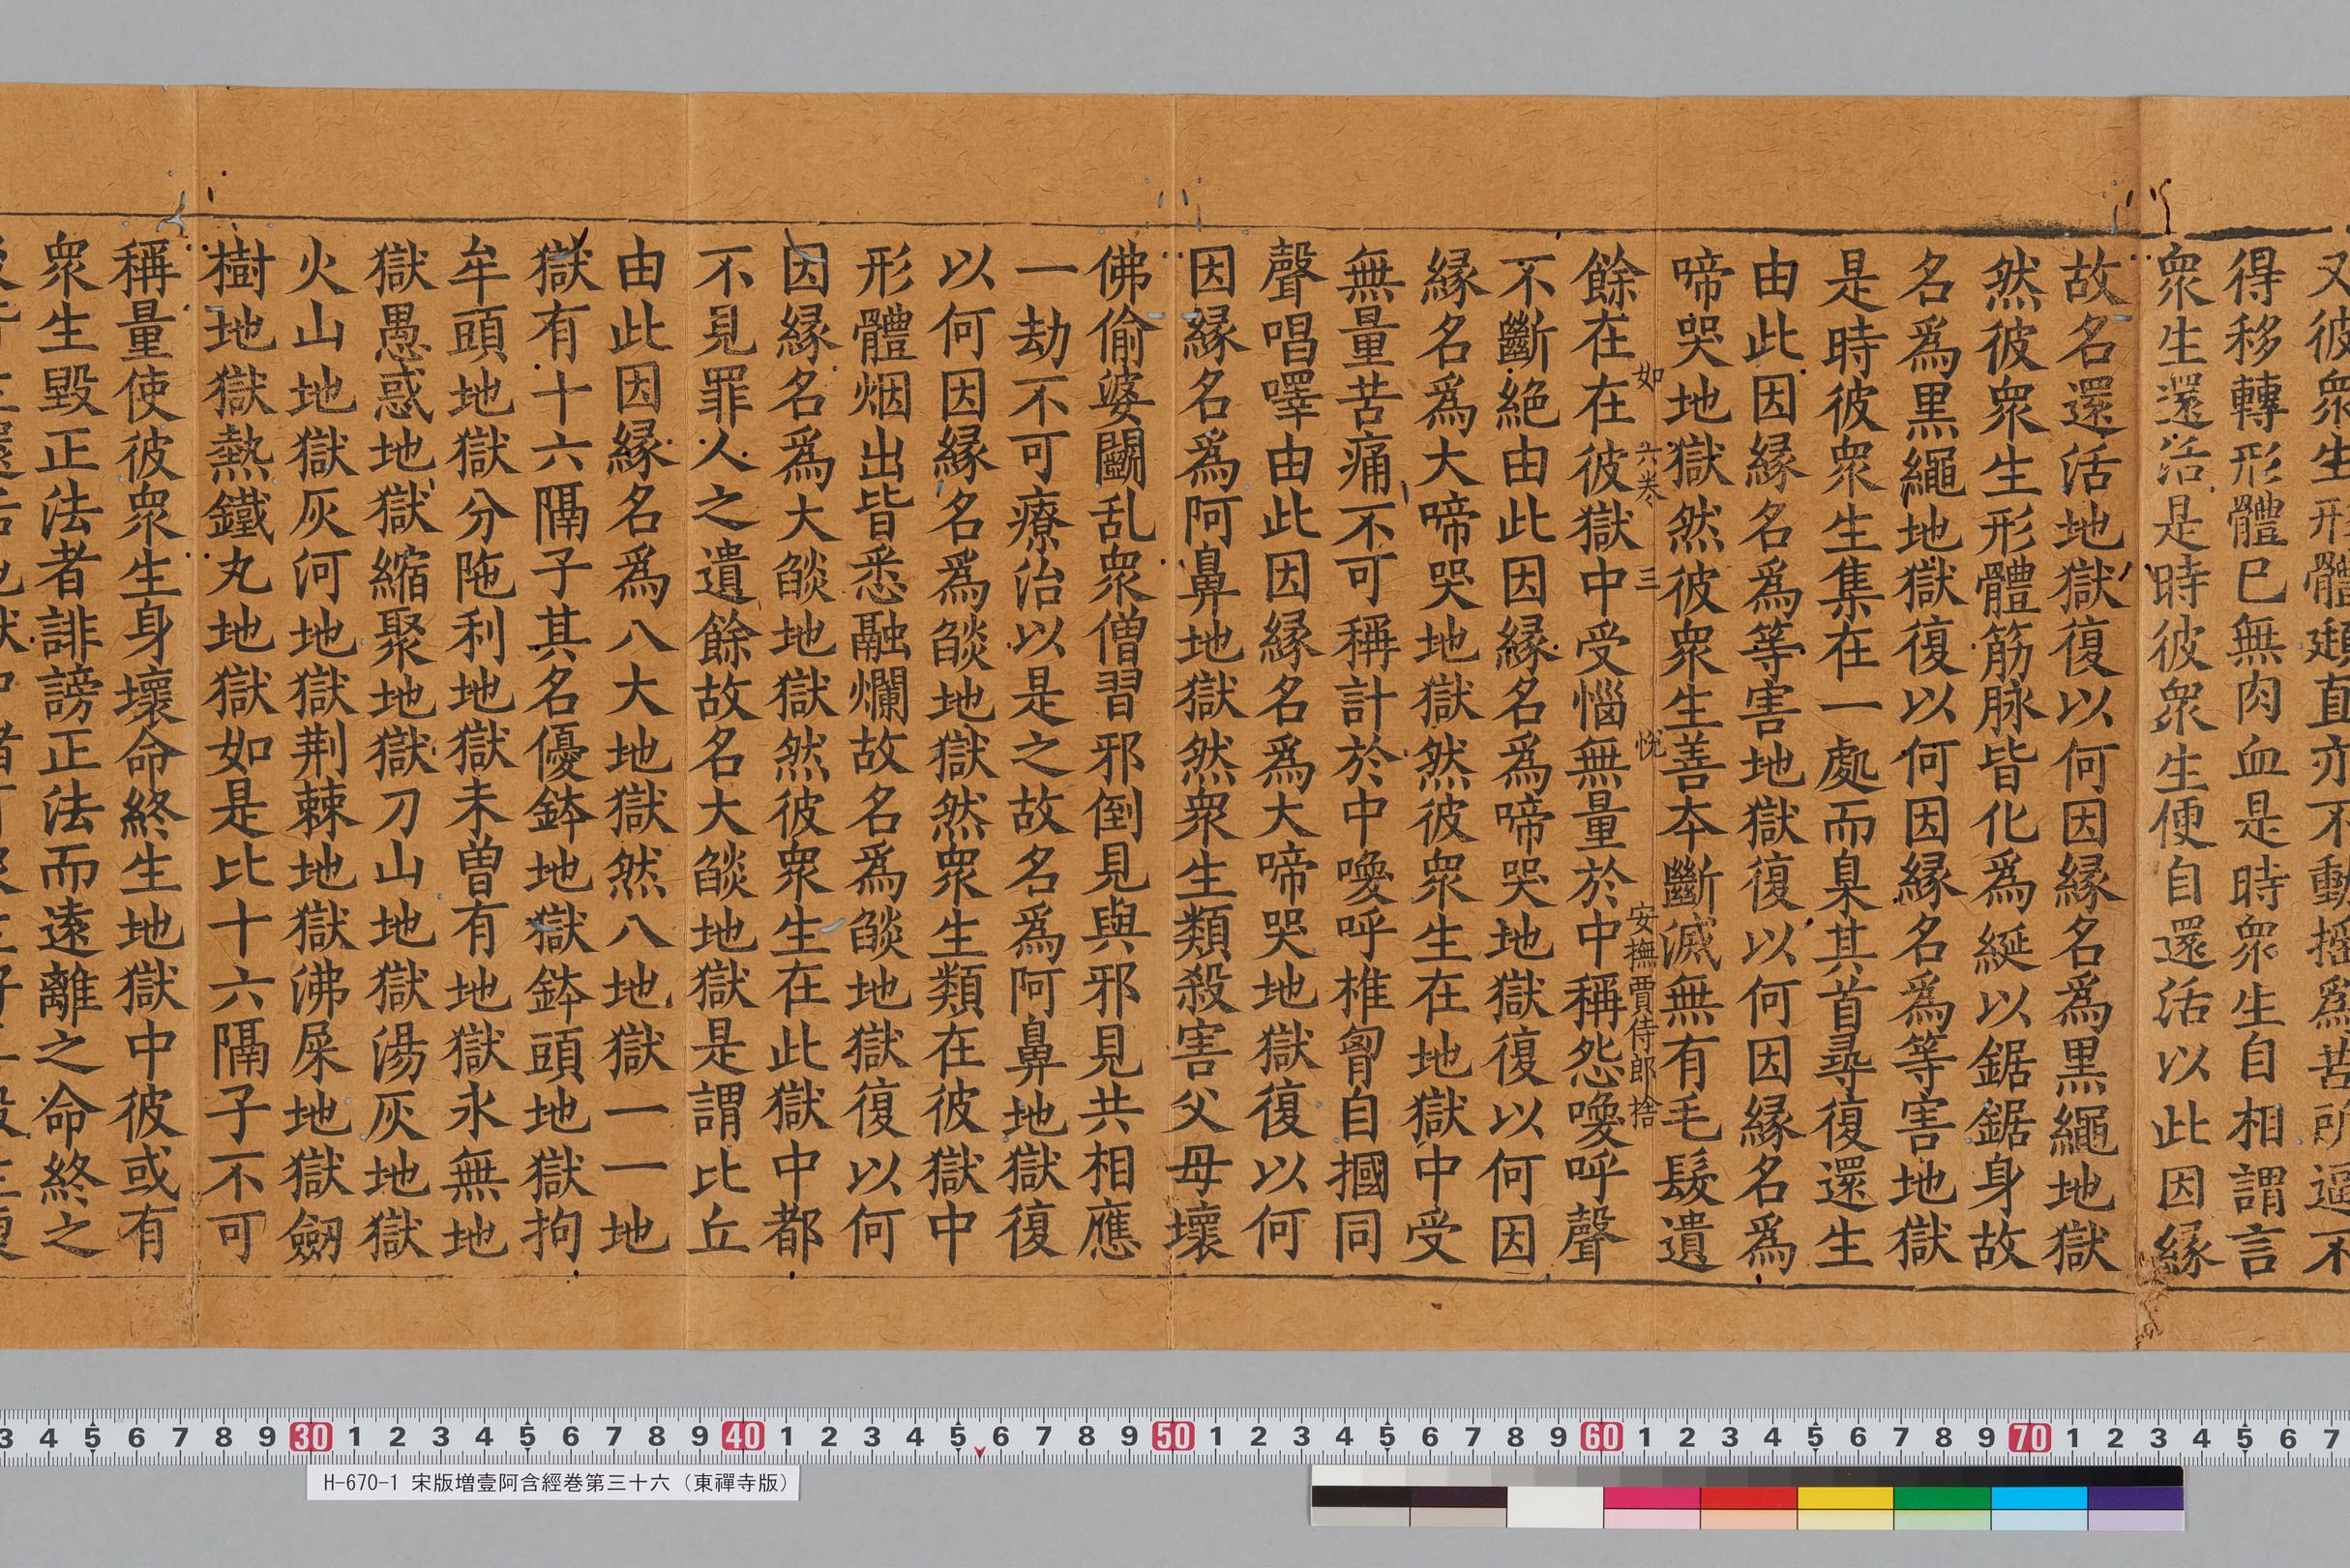 又彼衆生形體𧺫直亦不動揺爲苦所逼不
得移轉形體已無肉血是時衆生自相謂言
衆生還活還活是時彼衆生便自還活以此因緣
故名還活地獄復以何因縁名爲黒繩地獄
然彼衆生形體筋脉皆化爲綖以鋸鋸身故
名爲黒繩地獄復以何因縁名爲等害地獄
是時彼衆生集在一處而梟其首尋復還生
由此因縁名爲等害地獄復以何因縁名爲
啼哭地獄然彼衆生善夲斷滅無有毛髮遺
如 六卷 三 恱 安撫賈侍郎捨
餘在在彼獄中受惱無量於中稱怨喚呼聲
不斷絶由此因縁名爲啼哭地獄復以何因
縁名爲大啼哭地獄然彼衆生在地獄中受
無量苦痛不可稱計於中喚呼椎胷自摑同
聲唱噿由此因縁名爲大啼哭地獄復以何
因縁名爲阿鼻地獄然衆生類殺害父母壞
佛偷婆鬬乱衆僧習邪倒見與邪見共相應
一劫不可療治以是之故名爲阿鼻地獄復
以何因縁名爲𦦨地獄然衆生類在彼獄中
形體烟出皆悉融爛故名爲𦦨地獄復以何
因縁名爲大𦦨地獄然彼衆生在此獄中都
不見罪人之遺餘故名大𦦨地獄是謂比丘
由此因縁名爲八大地獄然八地獄一一地
獄有十六隔子其名優鉢地獄鉢頭地獄拘
牟頭地獄分陁利地獄未曽有地獄永無地
獄愚惑地獄縮聚地獄刀山地獄湯灰地獄
火山地獄灰河地獄荆棘地獄沸屎地獄劒
樹地獄熱鐵丸地獄如是比十六隔子不可
稱量使彼衆生身壞命終生地獄中彼或有
衆生毀正法者誹謗正法而遠離之命終之
H-670-1 宋版増壹阿含經巻第三十六（東禪寺版）